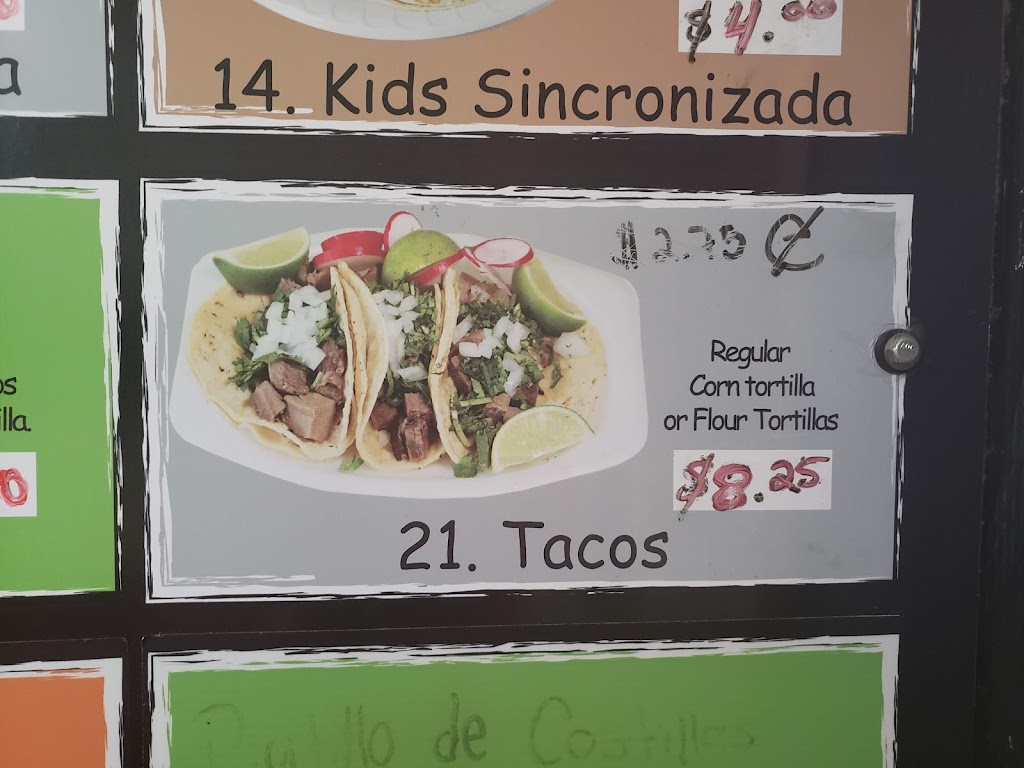 $4.00
a
14. Kids Sincronizada
$2.75 ₡
Regular
Corn tortilla
or Flour Tortillas
$8.25
illa.
0
21. Tacos
de Costillas